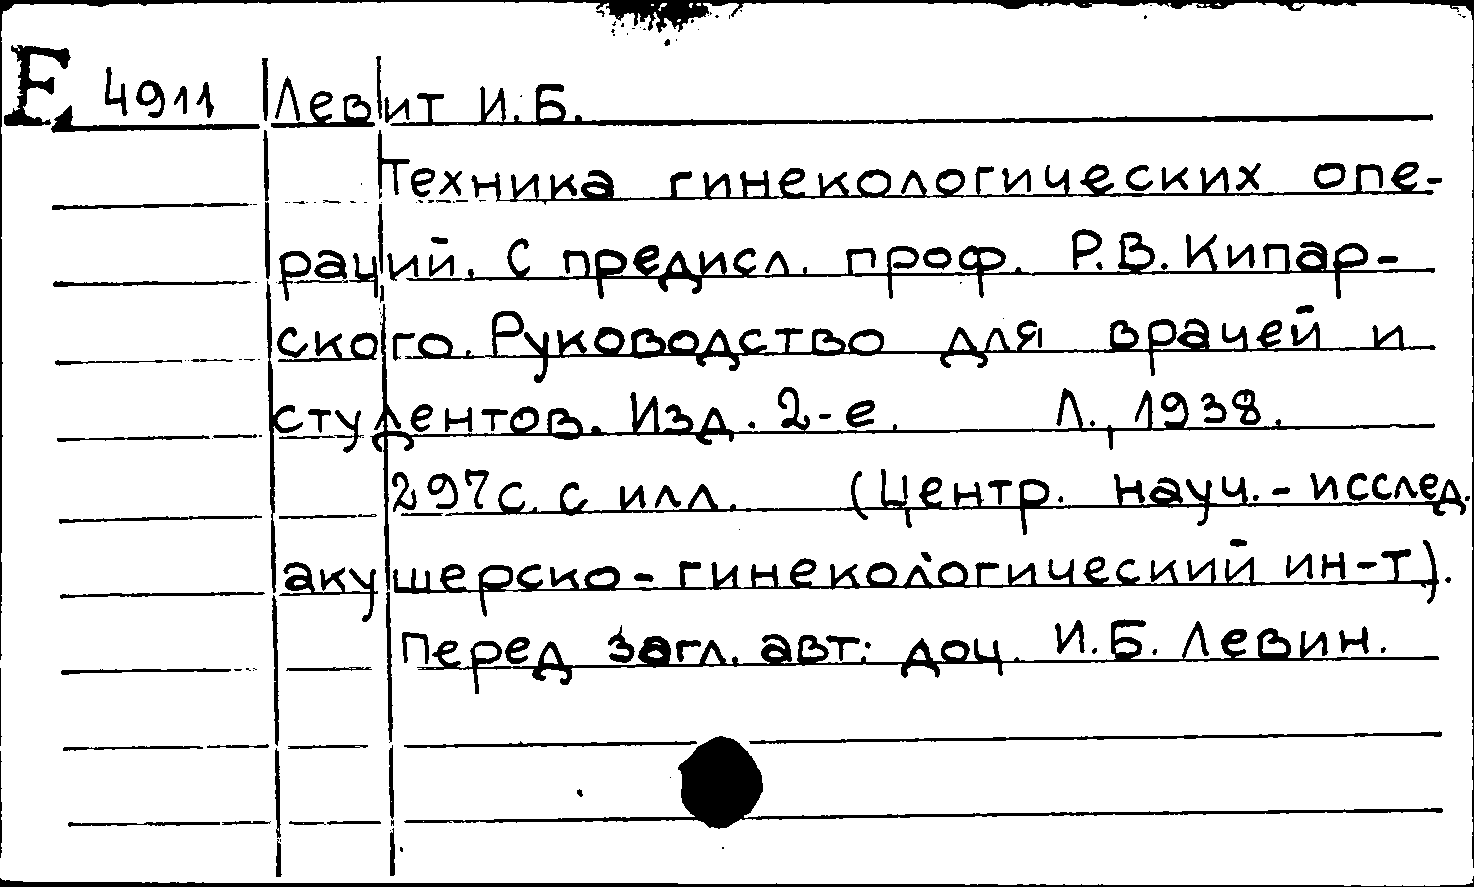 E 4911 Левит И.Б.
Техника гинекологических опе-
раций. С предисл. проф. Р.В. Кипар-
ского. Руководство для врачей и
студентов. Изд. 2-е. Л., 1938.
297с. с илл. (Центр. науч.-исслед.
акушерско-гинекологический ин-т).
Перед загл. авт: доц. И.Б. Левин.